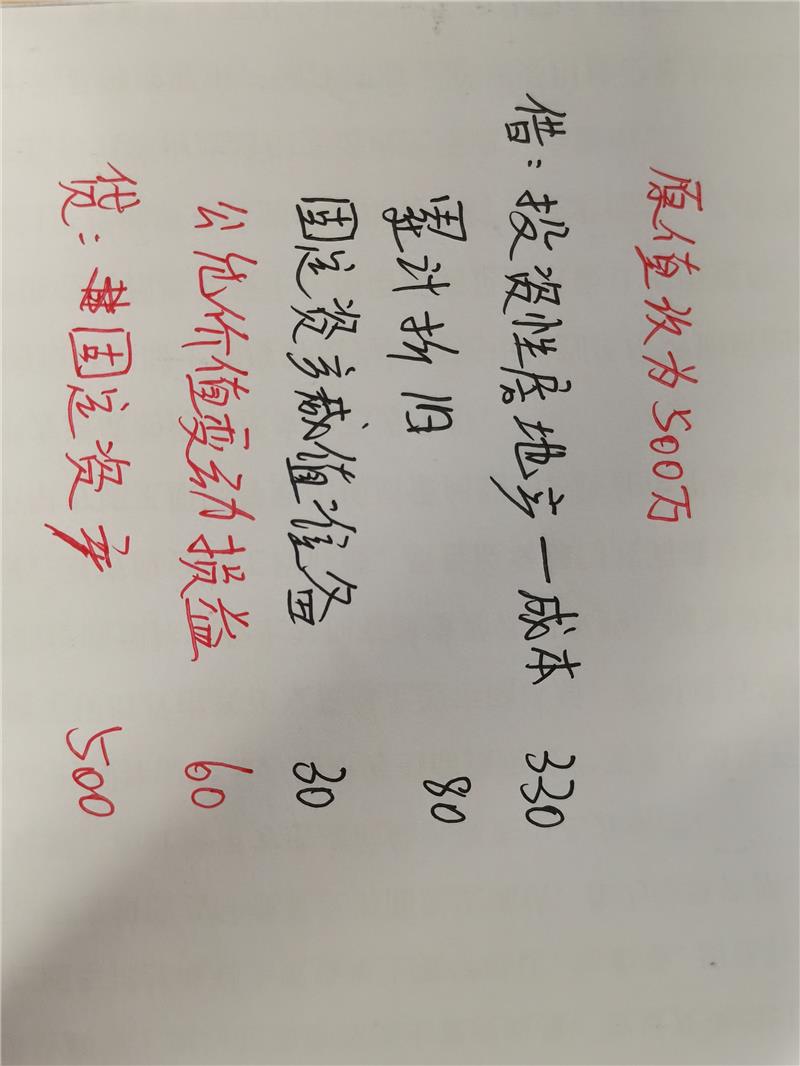 原值改为500万
借:投资性房地产一成本 330
累计折旧 80
固定资产减值准备 30
公允价值变动损益 60
贷:固定资产 500